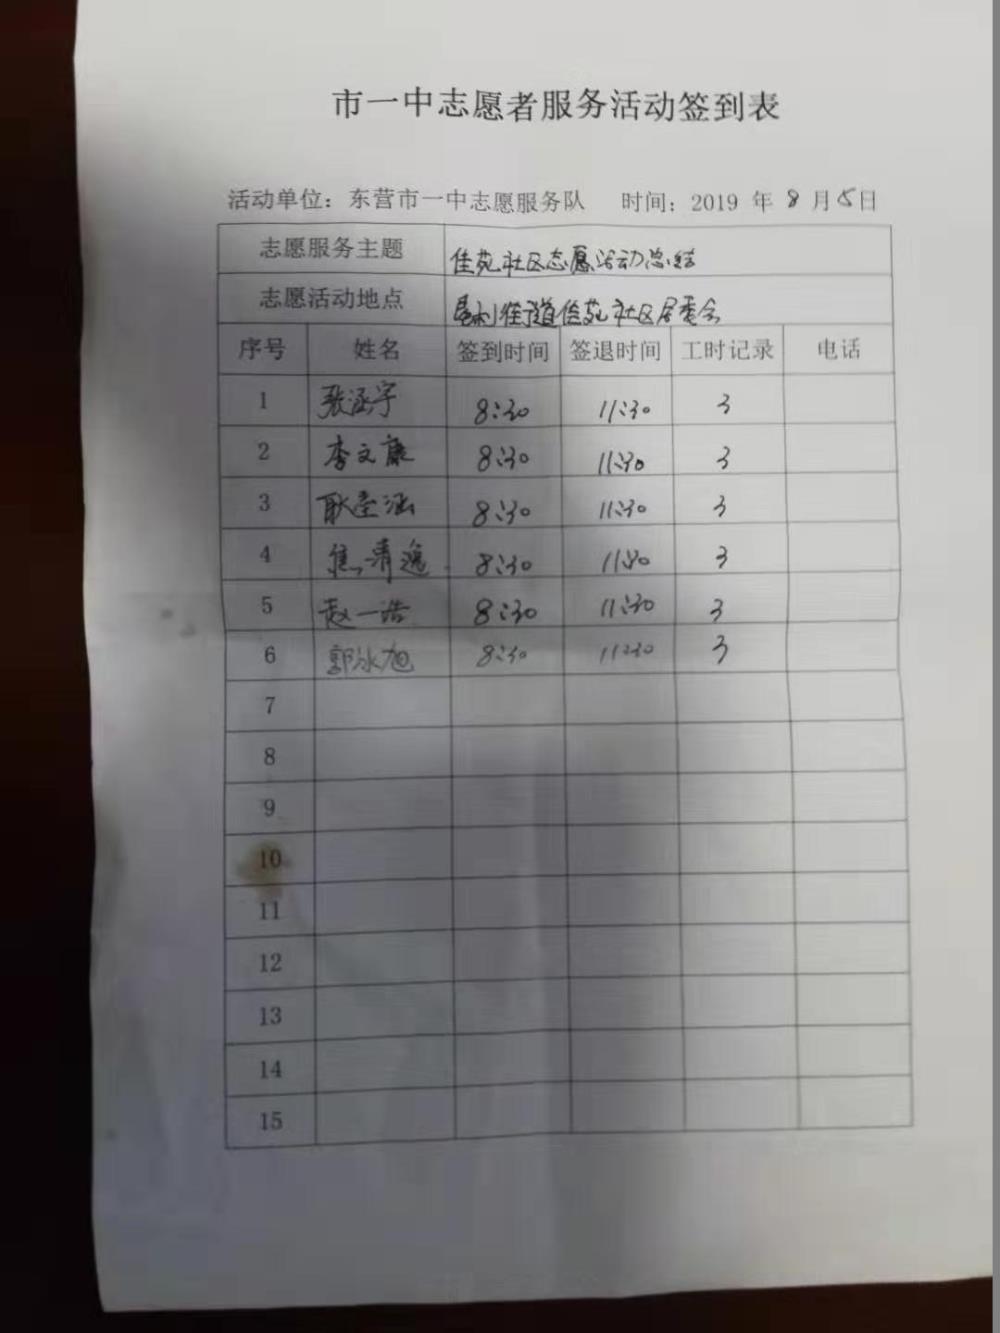 市一中志愿者服务活动签到表
活动单位：东营市一中志愿服务队 时间：2019 年 8 月 5 日
志愿服务主题 佳苑社区志愿活动总结
志愿活动地点 垦利街道佳苑社区居委会
序号 姓名 签到时间 签退时间 工时记录 电话
1 张涵宇 8:30 11:30 3
2 李文康 8:30 11:30 3
3 耿圣涵 8:30 11:30 3
4 焦清逸 8:30 11:30 3
5 赵一浩 8:30 11:30 3
6 郭冰旭 8:30 11:30 3
7
8
9
10
11
12
13
14
15